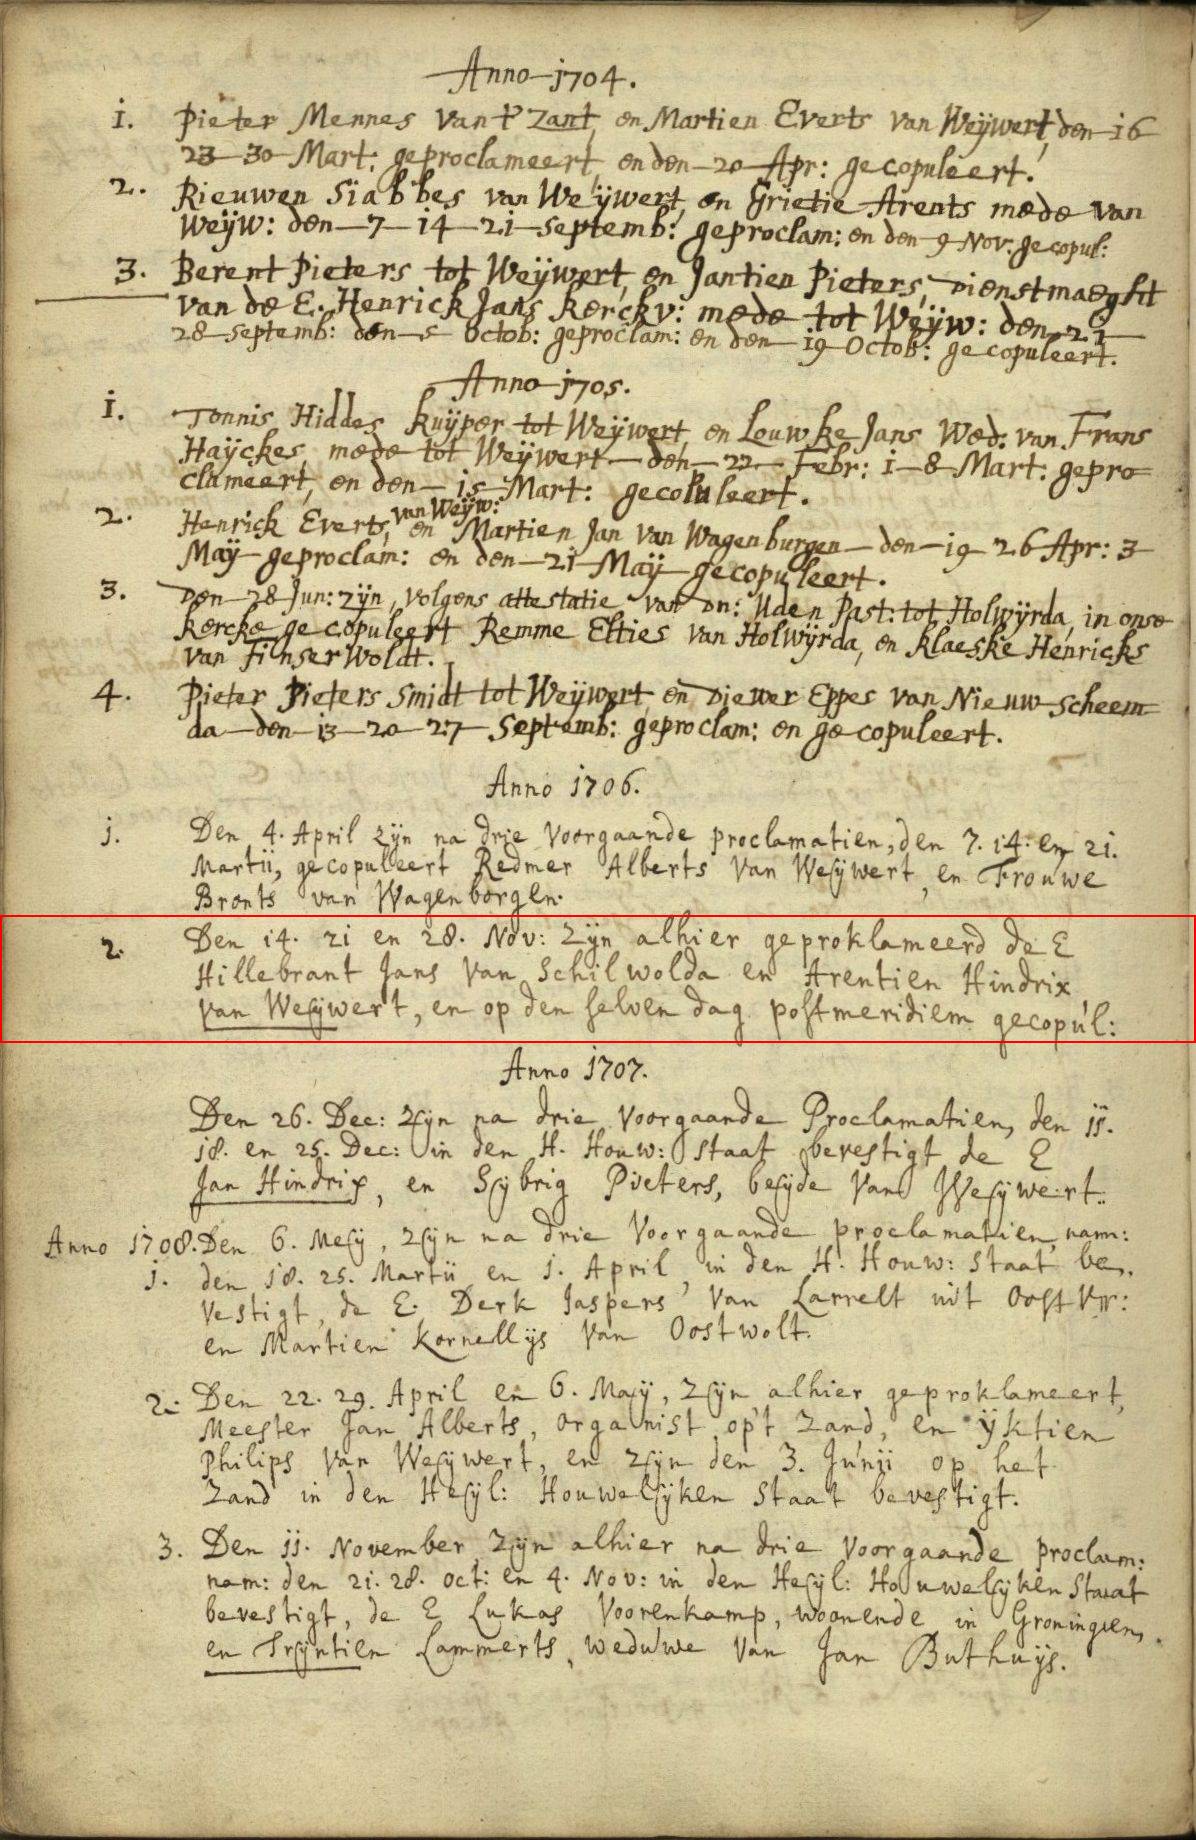 Anno 1704.
1. Pieter Mennes van 't Zant, en Martien Everts van Weÿwert, den 16
23 30 Mart: geproclameert, en den 20 Apr: gecopuleert.
2. Rieuwen Siabbes van Weÿwert, en Grietie Arents mede van
Weÿw: den 7 14 21 Septemb: geproclam: en den 9 Nov. gecopul:
3. Berent Pieters tot Weÿwert, en Jantien Pieters, Dienstmaeght
van de E. Henrick Jans Kerckv: mede tot Weÿw: den 21
28 Septemb: den 5 Octob: geproclam: en den 19 Octob: gecopuleert.
Anno 1705.
1. Tonnis Hiddes kuÿper tot Weÿwert, en Louwke Jans Wed: van Frans
Haÿckes mede tot Weÿwert den 22 Febr: 1 8 Mart: gepro=
clameert, en den 15 Mart: gecopuleert.
van Weÿw:
2. Henrick Everts, en Martien Jan van Wagenburgen den 19 26 Apr: 3
Maÿ geproclam: en den 21 Maÿ gecopuleert.
3. Den 28 Jun: zÿn, volgens attestatie van Dn: Uden Past: tot Holwÿrda, in onse
kercke gecopuleert Remme Elties van Holwÿrda, en Klaeske Henricks
van Finserwoldt.
4. Pieter Pieters Smidt tot Weÿwert, en Diewer Eppes van Nieuw Scheem
da den 13 20 27 Septemb: geproclam: en gecopuleert.
Anno 1706.
1. Den 4. April zÿn na drie voorgaande proclamatien, den 7. 14. en 21.
Martii, gecopuleert Redmer Alberts van Weÿwert, en Frouwe
Bronts van Wagenborgen.
2. Den 14. 21 en 28. Nov: zÿn alhier geproklameerd de E
Hillebrant Jans van Schilwolda en Arentien Hindrix
van Weÿwert, en op den selven dag postmeridiem gecopul:
Anno 1707.
Den 26. Dec: zÿn na drie voorgaande Proclamatien, den 11.
18. en 25. Dec: in den H. Houw: staat bevestigt de E
Jan Hindrix, en Sÿbrig Pieters, beÿde van Weÿwert.
Anno 1708. Den 6. Meÿ, zÿn na drie voorgaande proclamatien, nam:
1. den 18. 25. Martii en 1. April, in den H. Houw: staat be=
vestigt, de E. Derk Jaspers van Larrelt uit Oostvr:
en Martien Kornellÿs van Oostwolt.
2. Den 22. 29. April en 6. Maÿ, zÿn alhier geproklameert,
Meester Jan Alberts, organist op't Zand, en ÿktien
Philips van Weÿwert, en zÿn den 3. Junii op het
Zand in den Heÿl: Houwelÿken staat bevestigt.
3. Den 11. November zÿn alhier na drie voorgaande proclam:
nam: den 21. 28. Oct: en 4. Nov: in den Heÿl: Houwelÿken Staat
bevestigt, de E Lukas Voorenkamp, woonende in Groningen,
en Trÿntien Lammerts, weduwe van Jan Buthuÿs.